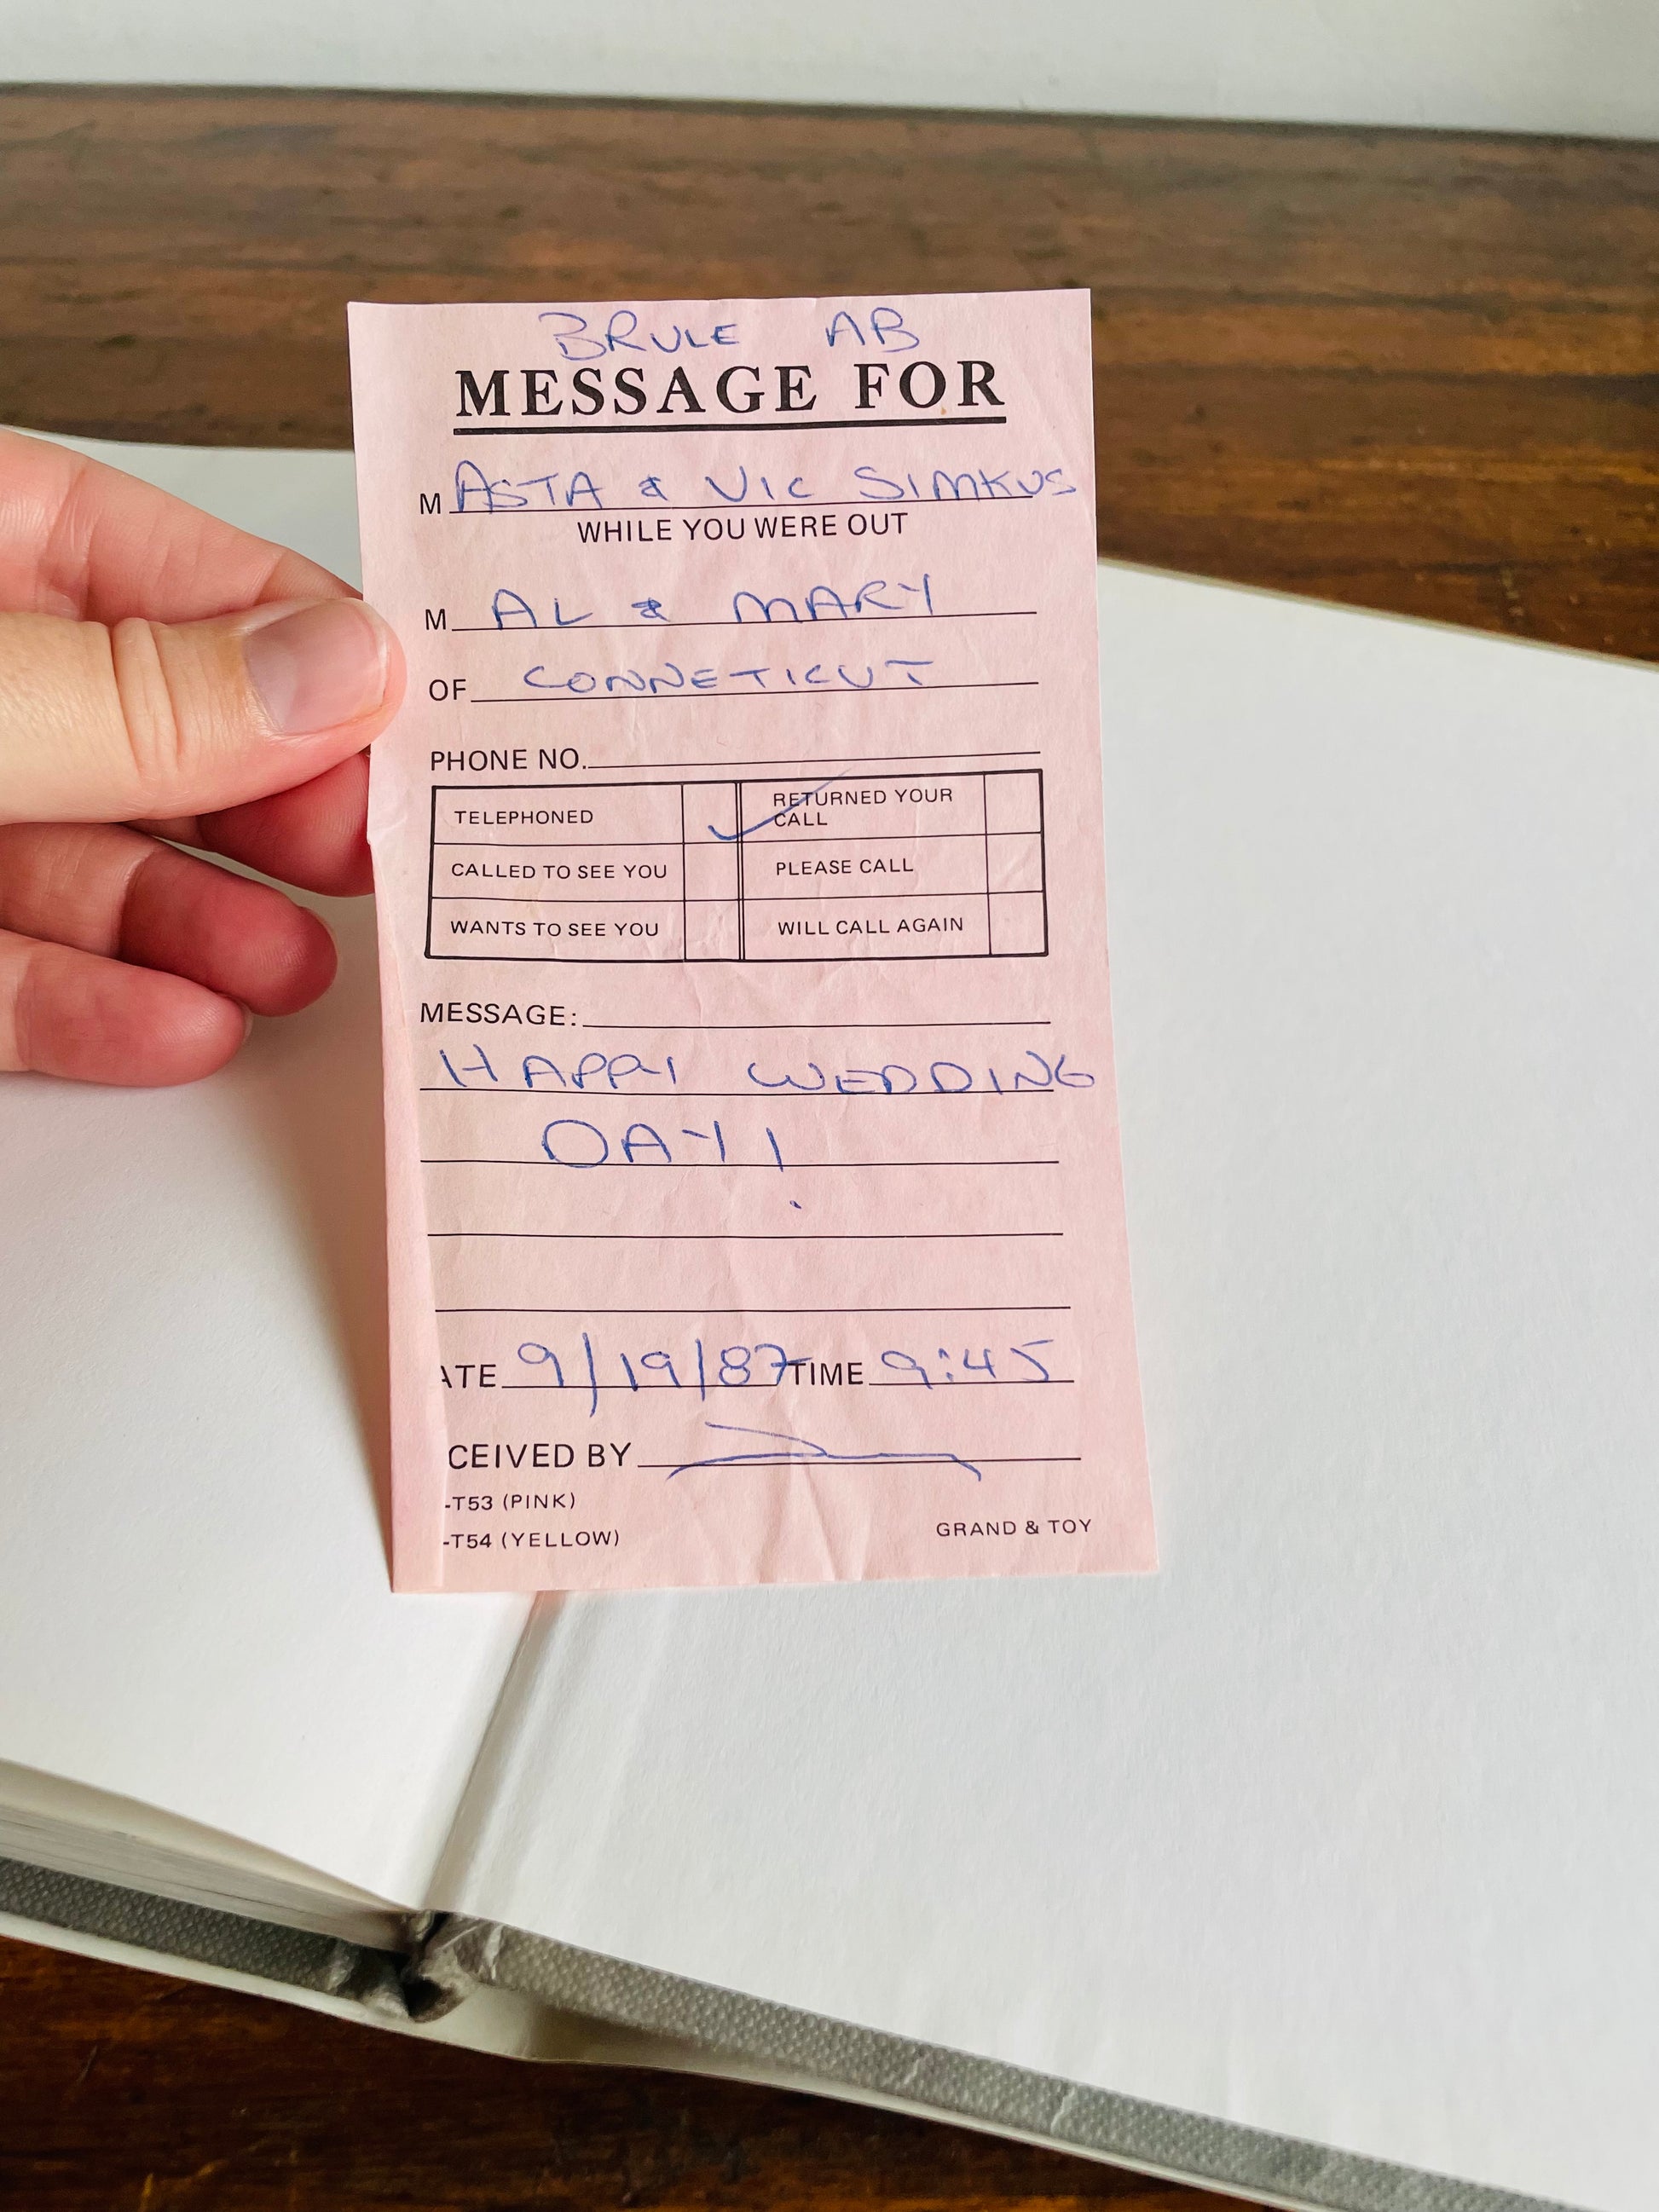 BRULE AB
MESSAGE FOR
M ASTA & VIC SIMKUS
WHILE YOU WERE OUT
M AL & MARY
OF CONNETICUT
PHONE NO.
TELEPHONED ✓ RETURNED YOUR CALL
CALLED TO SEE YOU PLEASE CALL
WANTS TO SEE YOU WILL CALL AGAIN
MESSAGE:
HAPPY WEDDING
DAY!
ATE 9/19/87 TIME 9:45
CEIVED BY
-T53 (PINK)
-T54 (YELLOW) GRAND & TOY